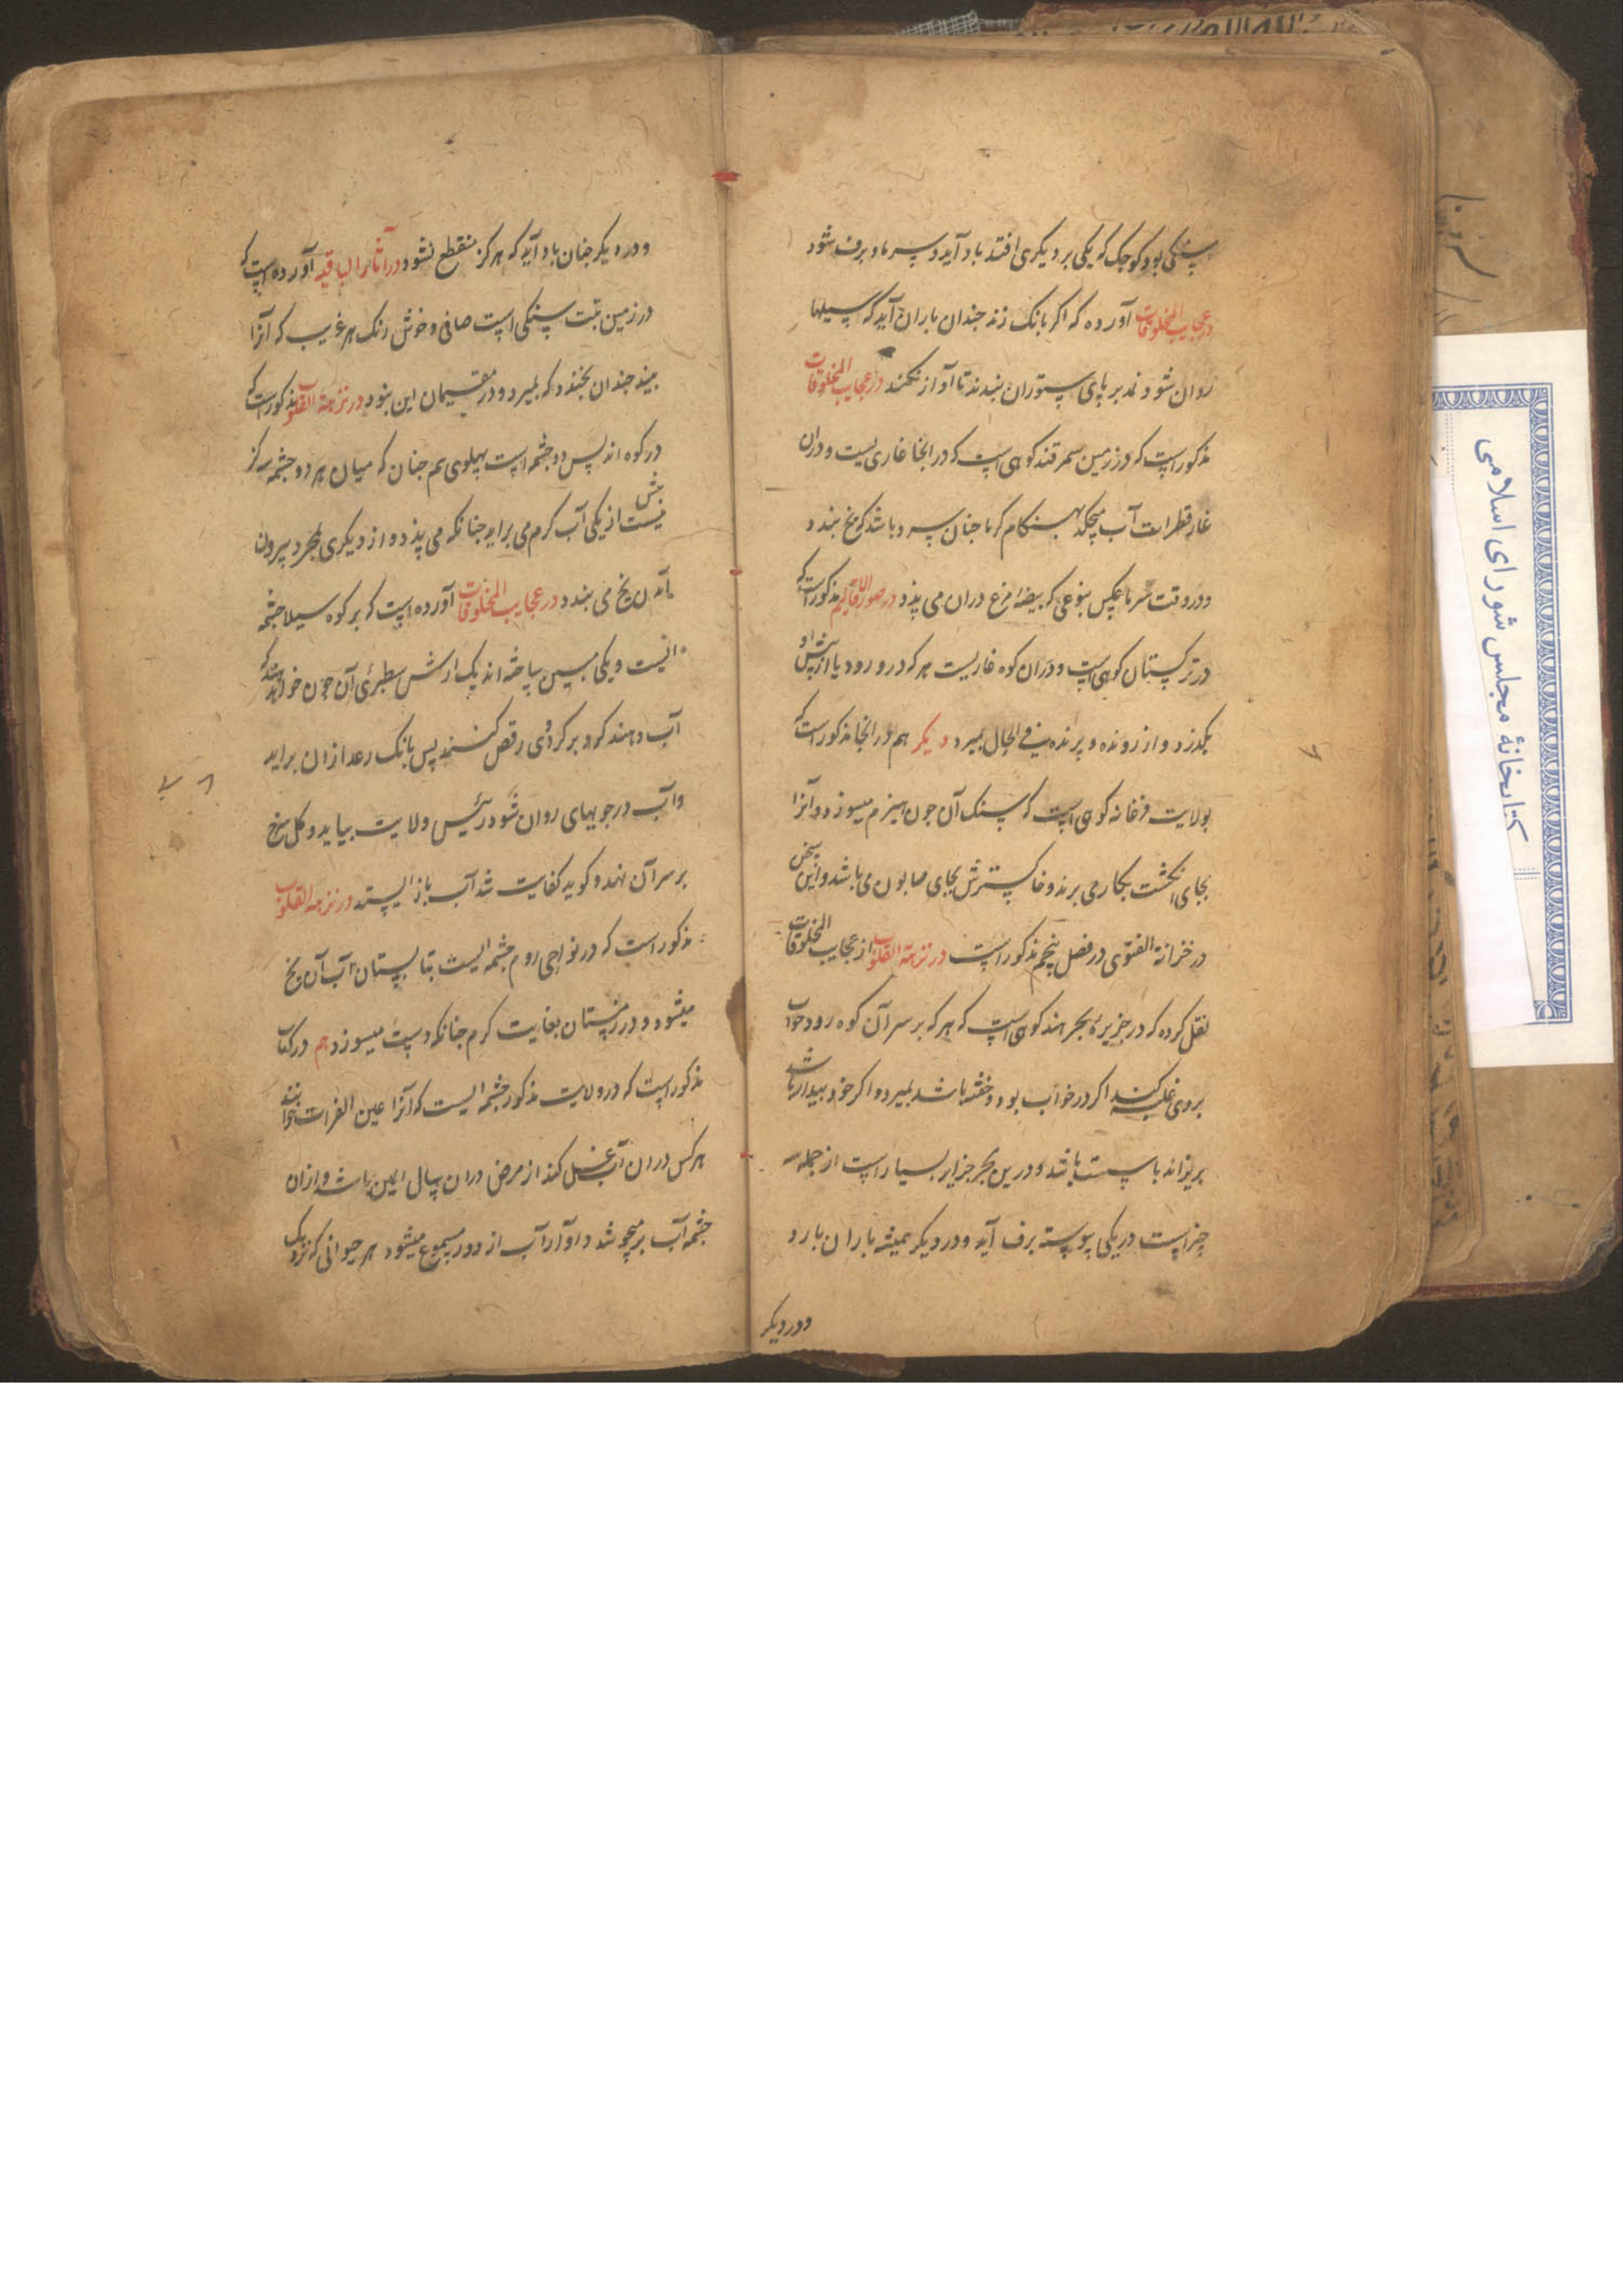 سنکی بود کوجک که یکی بر دیکری افتد باد آید و سرما و برف شود
در عجایب المخلوقات آورده که اکر بانک زند جندان باران آید که سیلها
روان شود نمد بر پای ستوران بندند تا آواز نکنند در عجایب المخلوقات
مذکور است که در زمین سمرقند کوهی است که در انجا غاریست و دران
غار قطرات آب میچکد بهنکام کرما جنان سرد باشد که یخ بندد
و در وقت سرما بعکس بنوعی که بیضه مرغ دران می پزد در صور الاقالیم مذکور است که
در ترکستان کوهی است و دران کوه غاریست هر که درو رود یا از پیش او
بکذرد از رونده و پرنده فی الحال بمیرد دیکر هم در انجا مذکور است که
بولایت فرغانه کوهی است که سنک آن جون هیزم میسوزد و آنرا
بجای انکشت بکار می برند و خاکسترش بجای صابون می باشد و این سخن
در خزانة الفتوی در فصل پنجم مذکور است در نزهة القلوب از عجایب المخلوقات
نقل کرده که در جزیرهٔ بحر هند کوهی است که هر که بر سر آن کوه رود خواب
بر وی غلبه کند اکر در خواب بود و خفته باشد بمیرد و اکر خود بیدار باشد
باشد و درین بحر جزایر بسیار است از جمله سه
جزیره است در یکی پیوسته برف آید و در دیکر همیشه باران بارد
و در دیکر
و در دیکر جنان باد آید که هرکز منقطع نشود در آثار الباقیه آورده است که
در زمین تبت سنکی است صافی و خوش رنک هر غریب که آنرا
بیند جندان بخندد که بمیرد و در مقیمان این بنود در نزهة القلوب مذکور است که
در کوه اندلس دو جشمه است پهلوی هم جنان که میان هر دو جشمه سه کز بیش
نیست از یکی آب کرم می براید جنانکه می پزد و از دیکری بمجرد بیرون
آمدن یخ می بندد در عجایب المخلوقات آورده است که بر کوه سیلا جشمه
ایست و یکی مسین ساخته اند یک ارش سطبری آن جون خواهند که
آب دهند کود بر کرد وی رقص کنند پس بانک رعد ازان براید
و آب در جویهای روان شود رئیس ولایت بیاید و کل سرخ
بر سر آن نهد و کوید کفایت شد آب باز ایستد در نزهة القلوب
مذکور است که در نواحی روم جشمه ایست بتابستان آب آن یخ
میشود و در زمستان بغایت کرم جنانکه دست میسوزد هم در کتاب
مذکور است که در ولایت مذکور جشمه ایست که آنرا عین الفرات خوانند
هر کس دران آب غسل کند از مرض دران سال ایمن باشد و ازان
جشمه آب بر میجوشد و آواز آب از دور مسموع میشود هر حیوانی که نزدیک
کتابخانهٔ مجلس شورای اسلامی